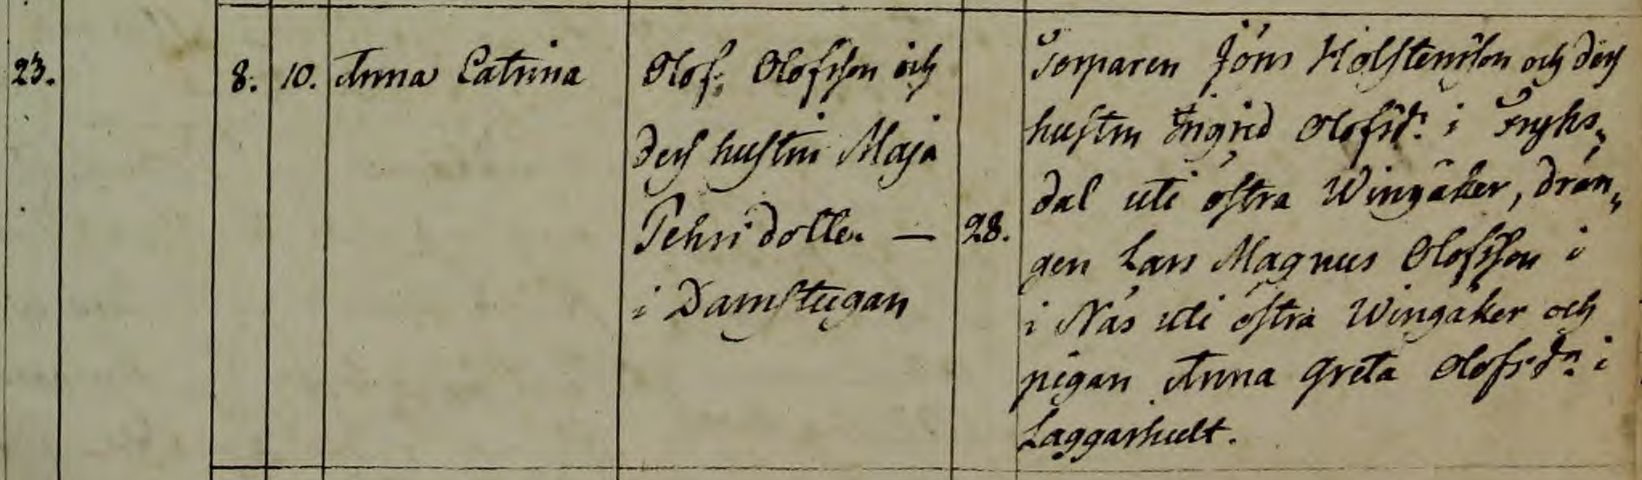 23.
8. 10. Anna Catrina
Olof Olofsson och
dess hustru Maja
Pehrsdotter —
i Damstugan
28.
Torparen Jöns Holstensson och dess
hustru Ingrid Olofsdr. i Fryks„
dal uti östra Wingåker, drän„
gen Lars Magnus Olofsson i
i Näs uti östra Wingåker och
pigan Anna Greta Olofsdr. i
Laggarhult.